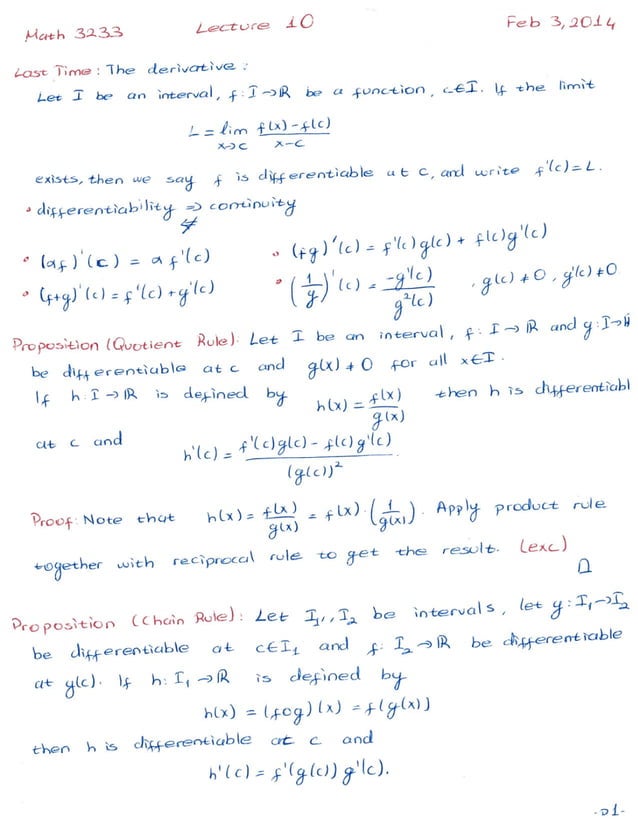 Math 3233 Lecture 10 Feb 3, 2014
Last Time: The derivative:
Let I be an interval, f: I→ℝ be a function, c∈I. If the limit
L = lim_{x→c} (f(x)-f(c))/(x-c)
exists, then we say f is differentiable at c, and write f'(c)=L.
• differentiability ⇒ continuity
⇍
• (af)'(c) = a f'(c) • (fg)'(c) = f'(c)g(c) + f(c)g'(c)
• (f+g)'(c) = f'(c)+g'(c) • (1/g)'(c) = -g'(c)/g²(c) , g(c) ≠ 0, g'(c) ≠ 0
Proposition (Quotient Rule): Let I be an interval, f: I→ℝ and g: I→ℝ
be differentiable at c and g(x) ≠ 0 for all x∈I.
If h: I→ℝ is defined by h(x) = f(x)/g(x) then h is differentiabl
at c and h'(c) = (f'(c)g(c) - f(c)g'(c))/(g(c))².
Proof: Note that h(x) = f(x)/g(x) = f(x)·(1/g(x)). Apply product rule
together with reciprocal rule to get the result. (exc)
□
Proposition (Chain Rule): Let I₁, I₂ be intervals, let g: I₁→I₂
be differentiable at c∈I₁ and f: I₂→ℝ be differentiable
at g(c). If h: I₁→ℝ is defined by
h(x) = (f∘g)(x) = f(g(x))
then h is differentiable at c and
h'(c) = f'(g(c)) g'(c).